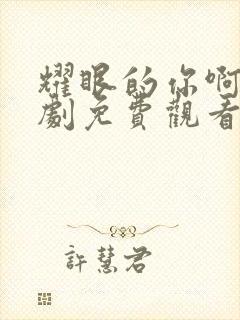 耀眼的你啊
劇免費觀看
許慧君